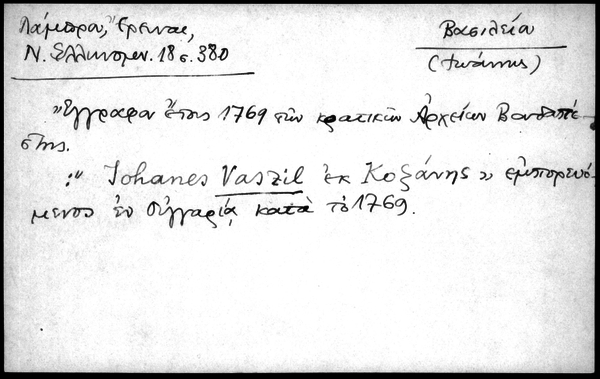 Λάμπρου, Ἔρευναι,
Ν. Ἑλληνομν. 18 σ. 380
Βασιλεία
(Ἰωάννης)
Ἔγγραφα ἔτους 1769 τῶν κρατικῶν Ἀρχείων Βουδαπέ-
στης.
:" Johanes Vaszil ἐκ Κοζάνης » ἐμπορευό-
μενος ἐν Οὐγγαρίᾳ κατὰ τὸ 1769.